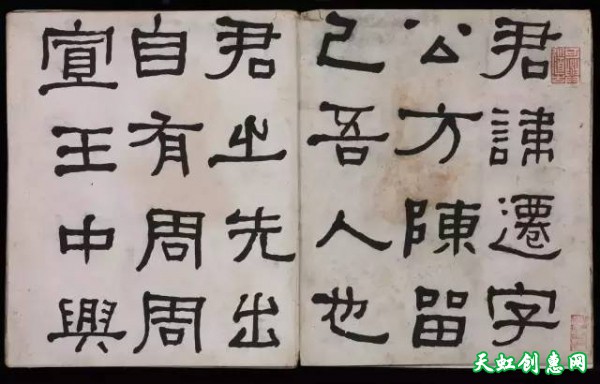 君諱遷字
公方陳留
己吾人也
君之先出
自有周周
宣王中興
天虹创惠网